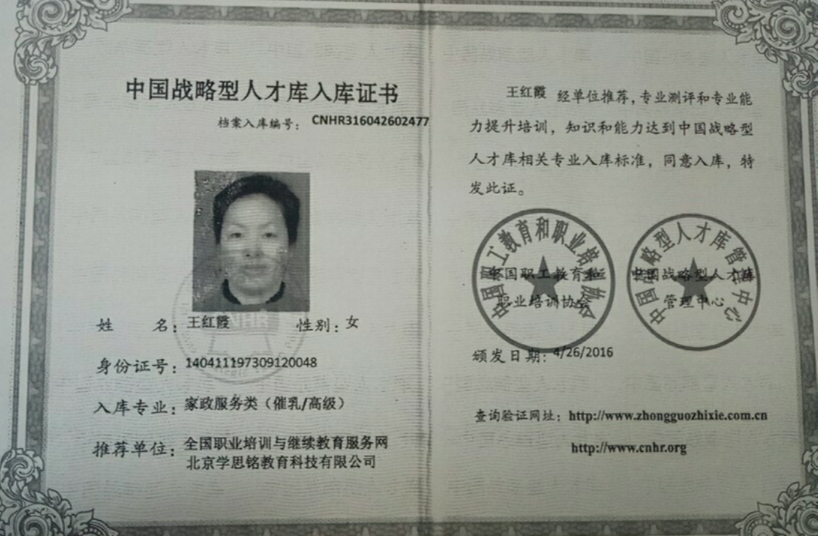 中国战略型人才库入库证书
档案入库编号： CNHR316042602477
姓 名：王红霞 性别：女
身份证号：140411197309120048
入库专业：家政服务类（催乳/高级）
推荐单位：全国职业培训与继续教育服务网
北京学思铭教育科技有限公司
王红霞 经单位推荐，专业测评和专业能
力提升培训，知识和能力达到中国战略型
人才库相关专业入库标准，同意入库，特
发此证。
中国职工教育和职业培训协会
中国职工教育和
职业培训协会
中国战略型人才库管理中心
中国战略型人才库
管理中心
颁发日期：4/26/2016
查询验证网址：http://www.zhongguozhixie.com.cn
http://www.cnhr.org